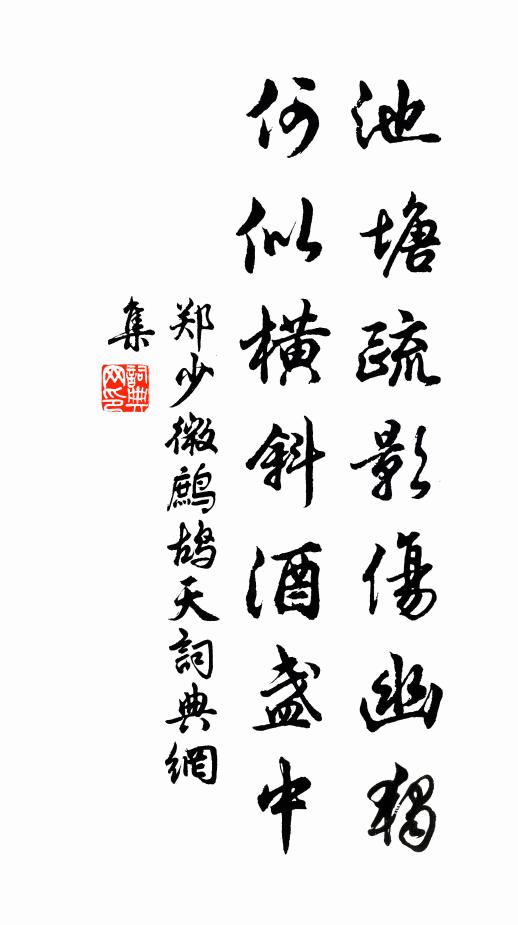 池塘疏影傷幽獨
何似橫斜酒盞中
郑少微鷓鴣天詞典網
集
詞典網印